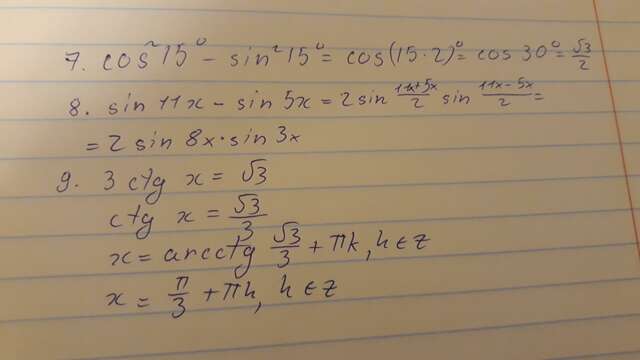 7. cos²15° - sin²15° = cos(15·2)° = cos 30° = √3/2
8. sin 11x - sin 5x = 2 sin (11x+5x)/2 sin (11x-5x)/2 =
= 2 sin 8x · sin 3x
9. 3 ctg x = √3
ctg x = √3/3
x = arcctg √3/3 + πk, k ∈ z
x = π/3 + πk, k ∈ z